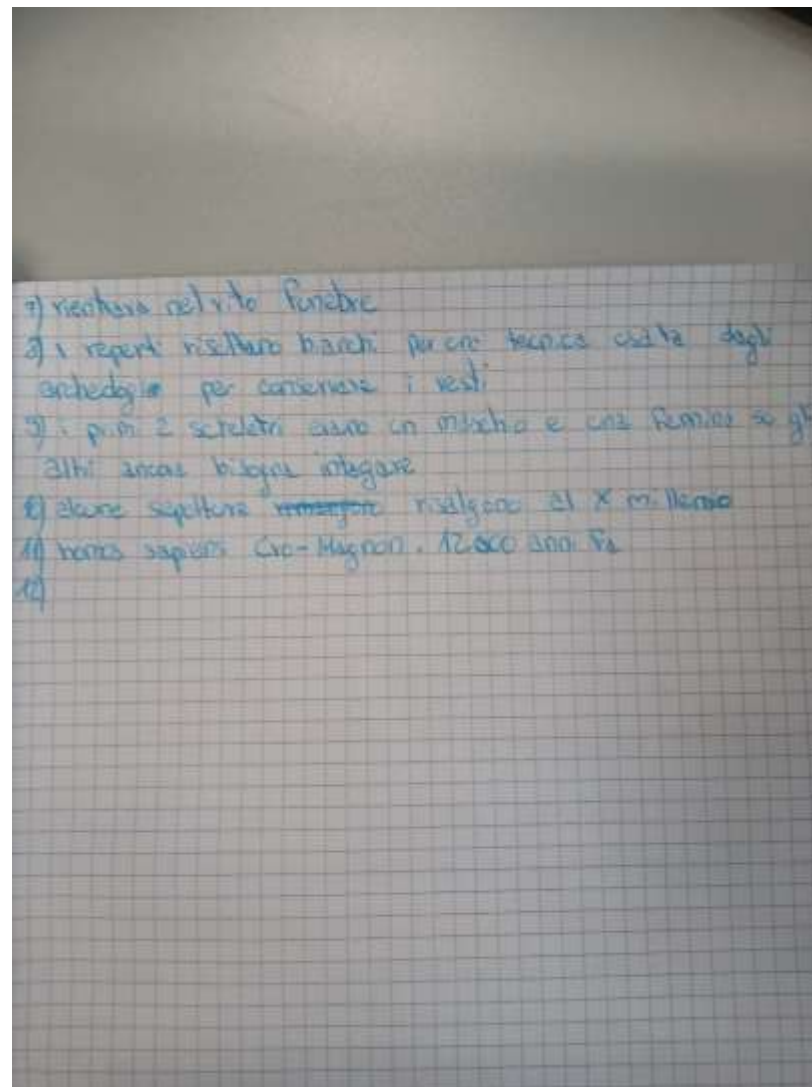 7) rientrava nel rito funebre
8) i reperti risultano bianchi per una tecnica usata dagli
archeologi per conservare i resti
9) i primi 2 scheletri erano un maschio e una femmina su gli
altri ancora bisogna indagare
10) alcune sepolture risalgono al X millennio
11) homo sapiens Cro-Magnon. 12000 anni fa
12)